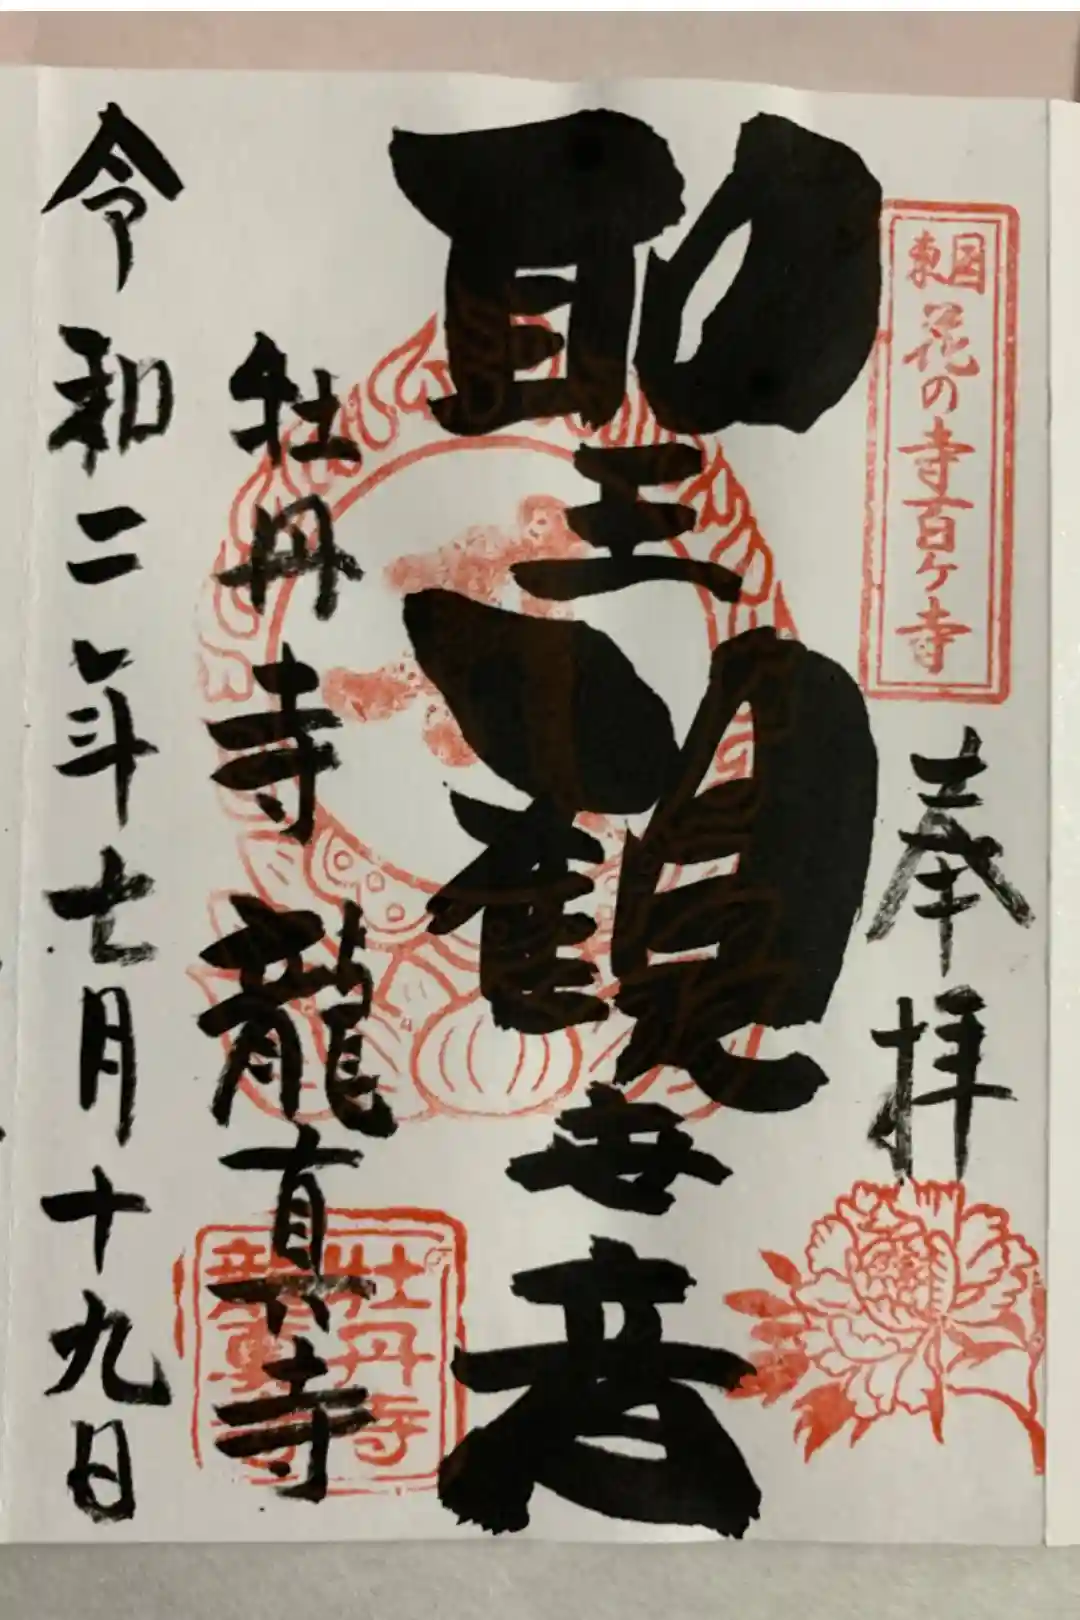 東国花の寺百ケ寺
奉拝
聖観世音
牡丹寺 龍真寺
牡丹寺
令和二年七月十九日